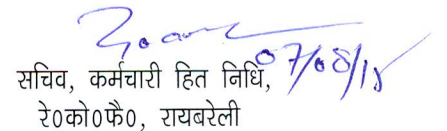 07/08/15
सचिव, कर्मचारी हित निधि,
रे०को०फै०, रायबरेली